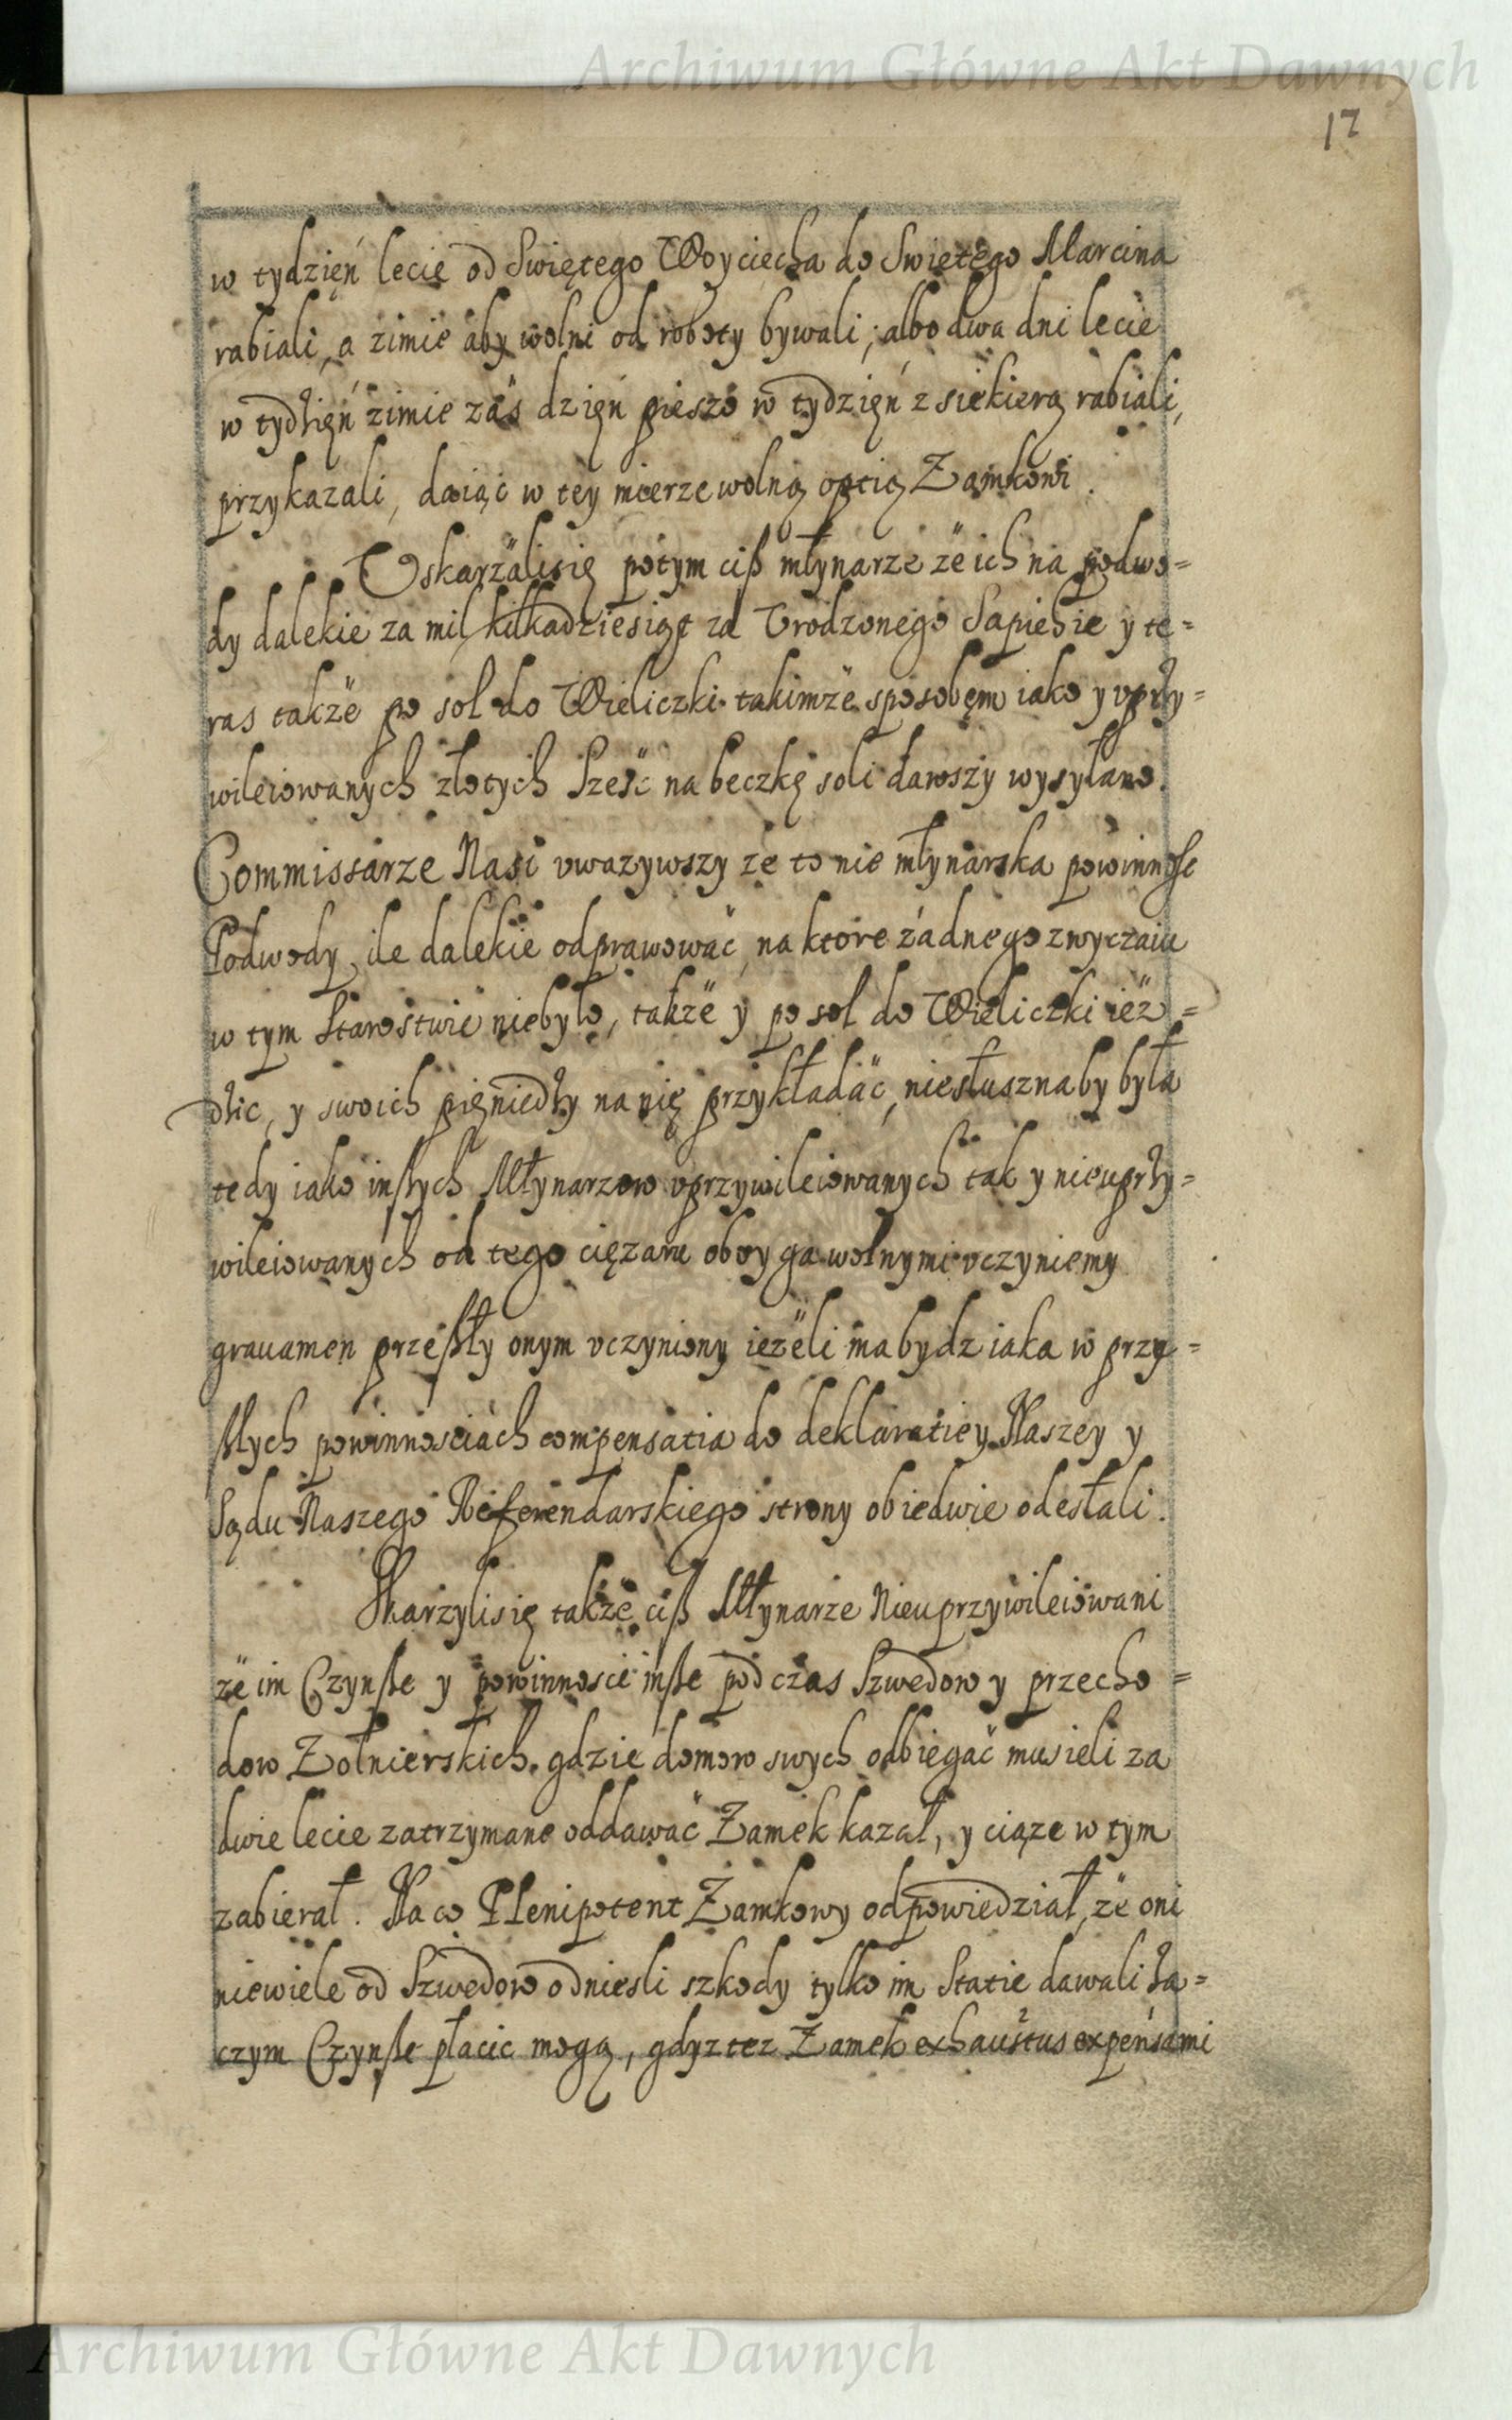 Archiwum Główne Akt Dawnych
17
w tydzięń lecie od Swiętego Woyciecha do Swietego Marcina
rabiali, a zimie aby wolni od roboty bywali, albo dwa dni lecie
w tydzięń zimie zaś dzięń pieszo w tydzięń z siekierą rabiali,
przykazali, daiąc w tey mierze wolną optią Zamkowi.
Uskarżalisię potym ciß młynarze że ich na podwo=
dy dalekie za mil kilkadziesiąt za Urodzonego Sapiehie y te=
ras także po sol do Wieliczki takimże sposobęm iako y uprzy=
wileiowanych złotych Sześć na beczkę soli dawszy wysyłano.
Commissarze Nasi uwazywszy ze to nie młynarska powinnosc
Podwody ile dalekie odprawować, na ktore żadnego zwyczaiu
w tym Starostwie niebyło, także y po sol do Wieliczki ież=
dzic, y swoich pięniedzy na nię przykładać, niesłuszna by była
tedy iako inszych Młynarzow uprzywileiowanych tak y nieuprzy=
wileiowanych od tego ciężaru oboyga wolnymi uczyniemy
gravamen przeszły onym uczyniony ieżeli ma bydz iaka w przy=
szłych powinnosciach compensatia do deklaratiey Naszey y
Sądu Naszego Referendarskiego strony obiedwie odesłali.
Skarzylisię także ciß Młynarze Nieuprzywileiowani
że im Czynsze y powinnoscie insze pod czas Szwedow y przecho=
dow Zołnierskich gdzie domow swych odbiegać musieli za
dwie lecie zatrzymane oddawać Zamek kazał, y ciąze w tym
zabierał. Na co Plenipotent Zamkowy odpowiedział, że oni
niewiele od Szwedow odniesli szkody tylko im Statie dawali za=
czym Czynsze płacic mogą, gdyz tez Zamek exhaustus expensami
Archiwum Główne Akt Dawnych